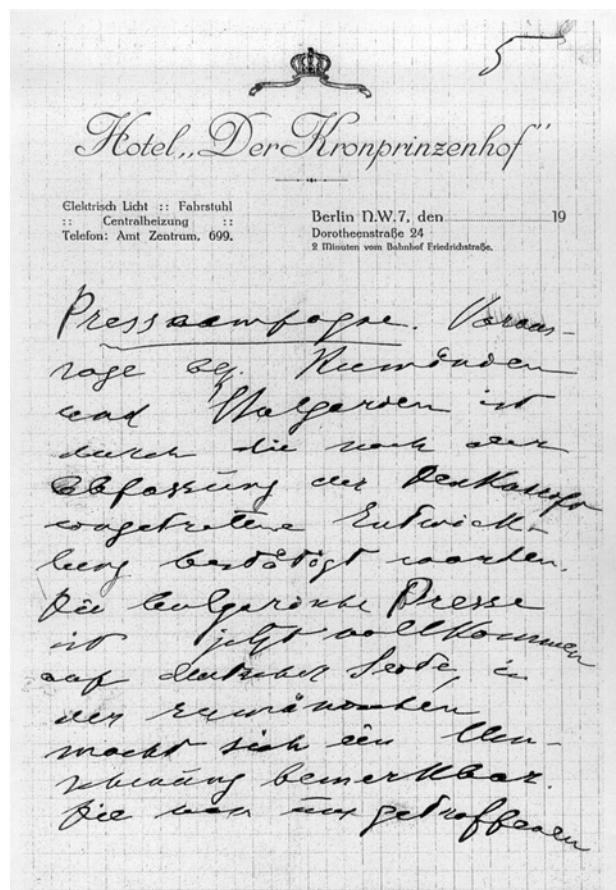 5
Hotel „Der Kronprinzenhof“
Elektrisch Licht :: Fahrstuhl
:: Centralheizung ::
Telefon: Amt Zentrum, 699.
Berlin N.W.7, den 19
Dorotheenstraße 24
2 Minuten vom Bahnhof Friedrichstraße.
Presskampagne. Voraus-
sage bez. Rumänien
und Bulgarien ist
durch die nach der
Abfassung der Denkschrift
eingetretene Entwick-
lung bestätigt worden.
Die bulgarische Presse
ist jetzt vollkommen
auf deutscher Seite, in
der rumänischen
macht sich ein Um-
schwung bemerkbar.
Die von uns getroffenen